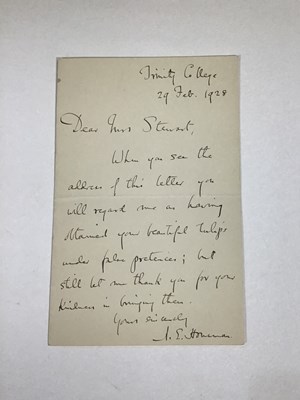 Trinity College
29 Feb. 1928
Dear Mrs Stewart,
When you see the
address of this letter you
will regard me as having
obtained your beautiful tulips
under false pretences; but
still let me thank you for your
kindness in bringing them.
Yours sincerely
A. E. Housman.